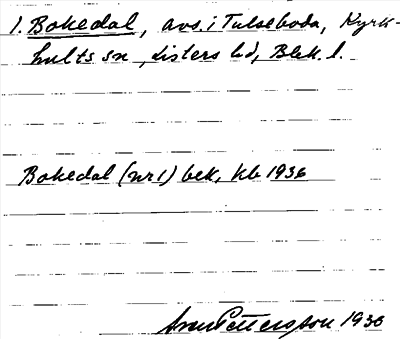 1. Bokedal, avs. i Tulseboda, Kyrk-
hults sn, Listers hd, Blek. l.
Bokedal (nr 1) bek, kb 1936
Sven Pettersson 1936